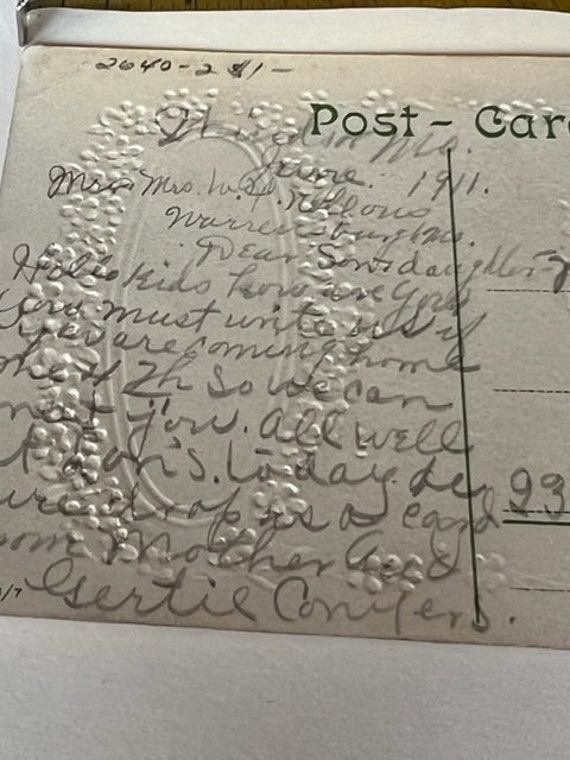 2640-2 $1-
Post-Car
Mo.
June. 1911.
Mr Mrs. W.
Warrensburg Mo.
Dear Son & daughter
Hello kids how are you
You must write us if
you are coming home
the 4 th so we can
meet you. all well
at today
sure drop us a card
from Mother and
Gertie Conyers.
93